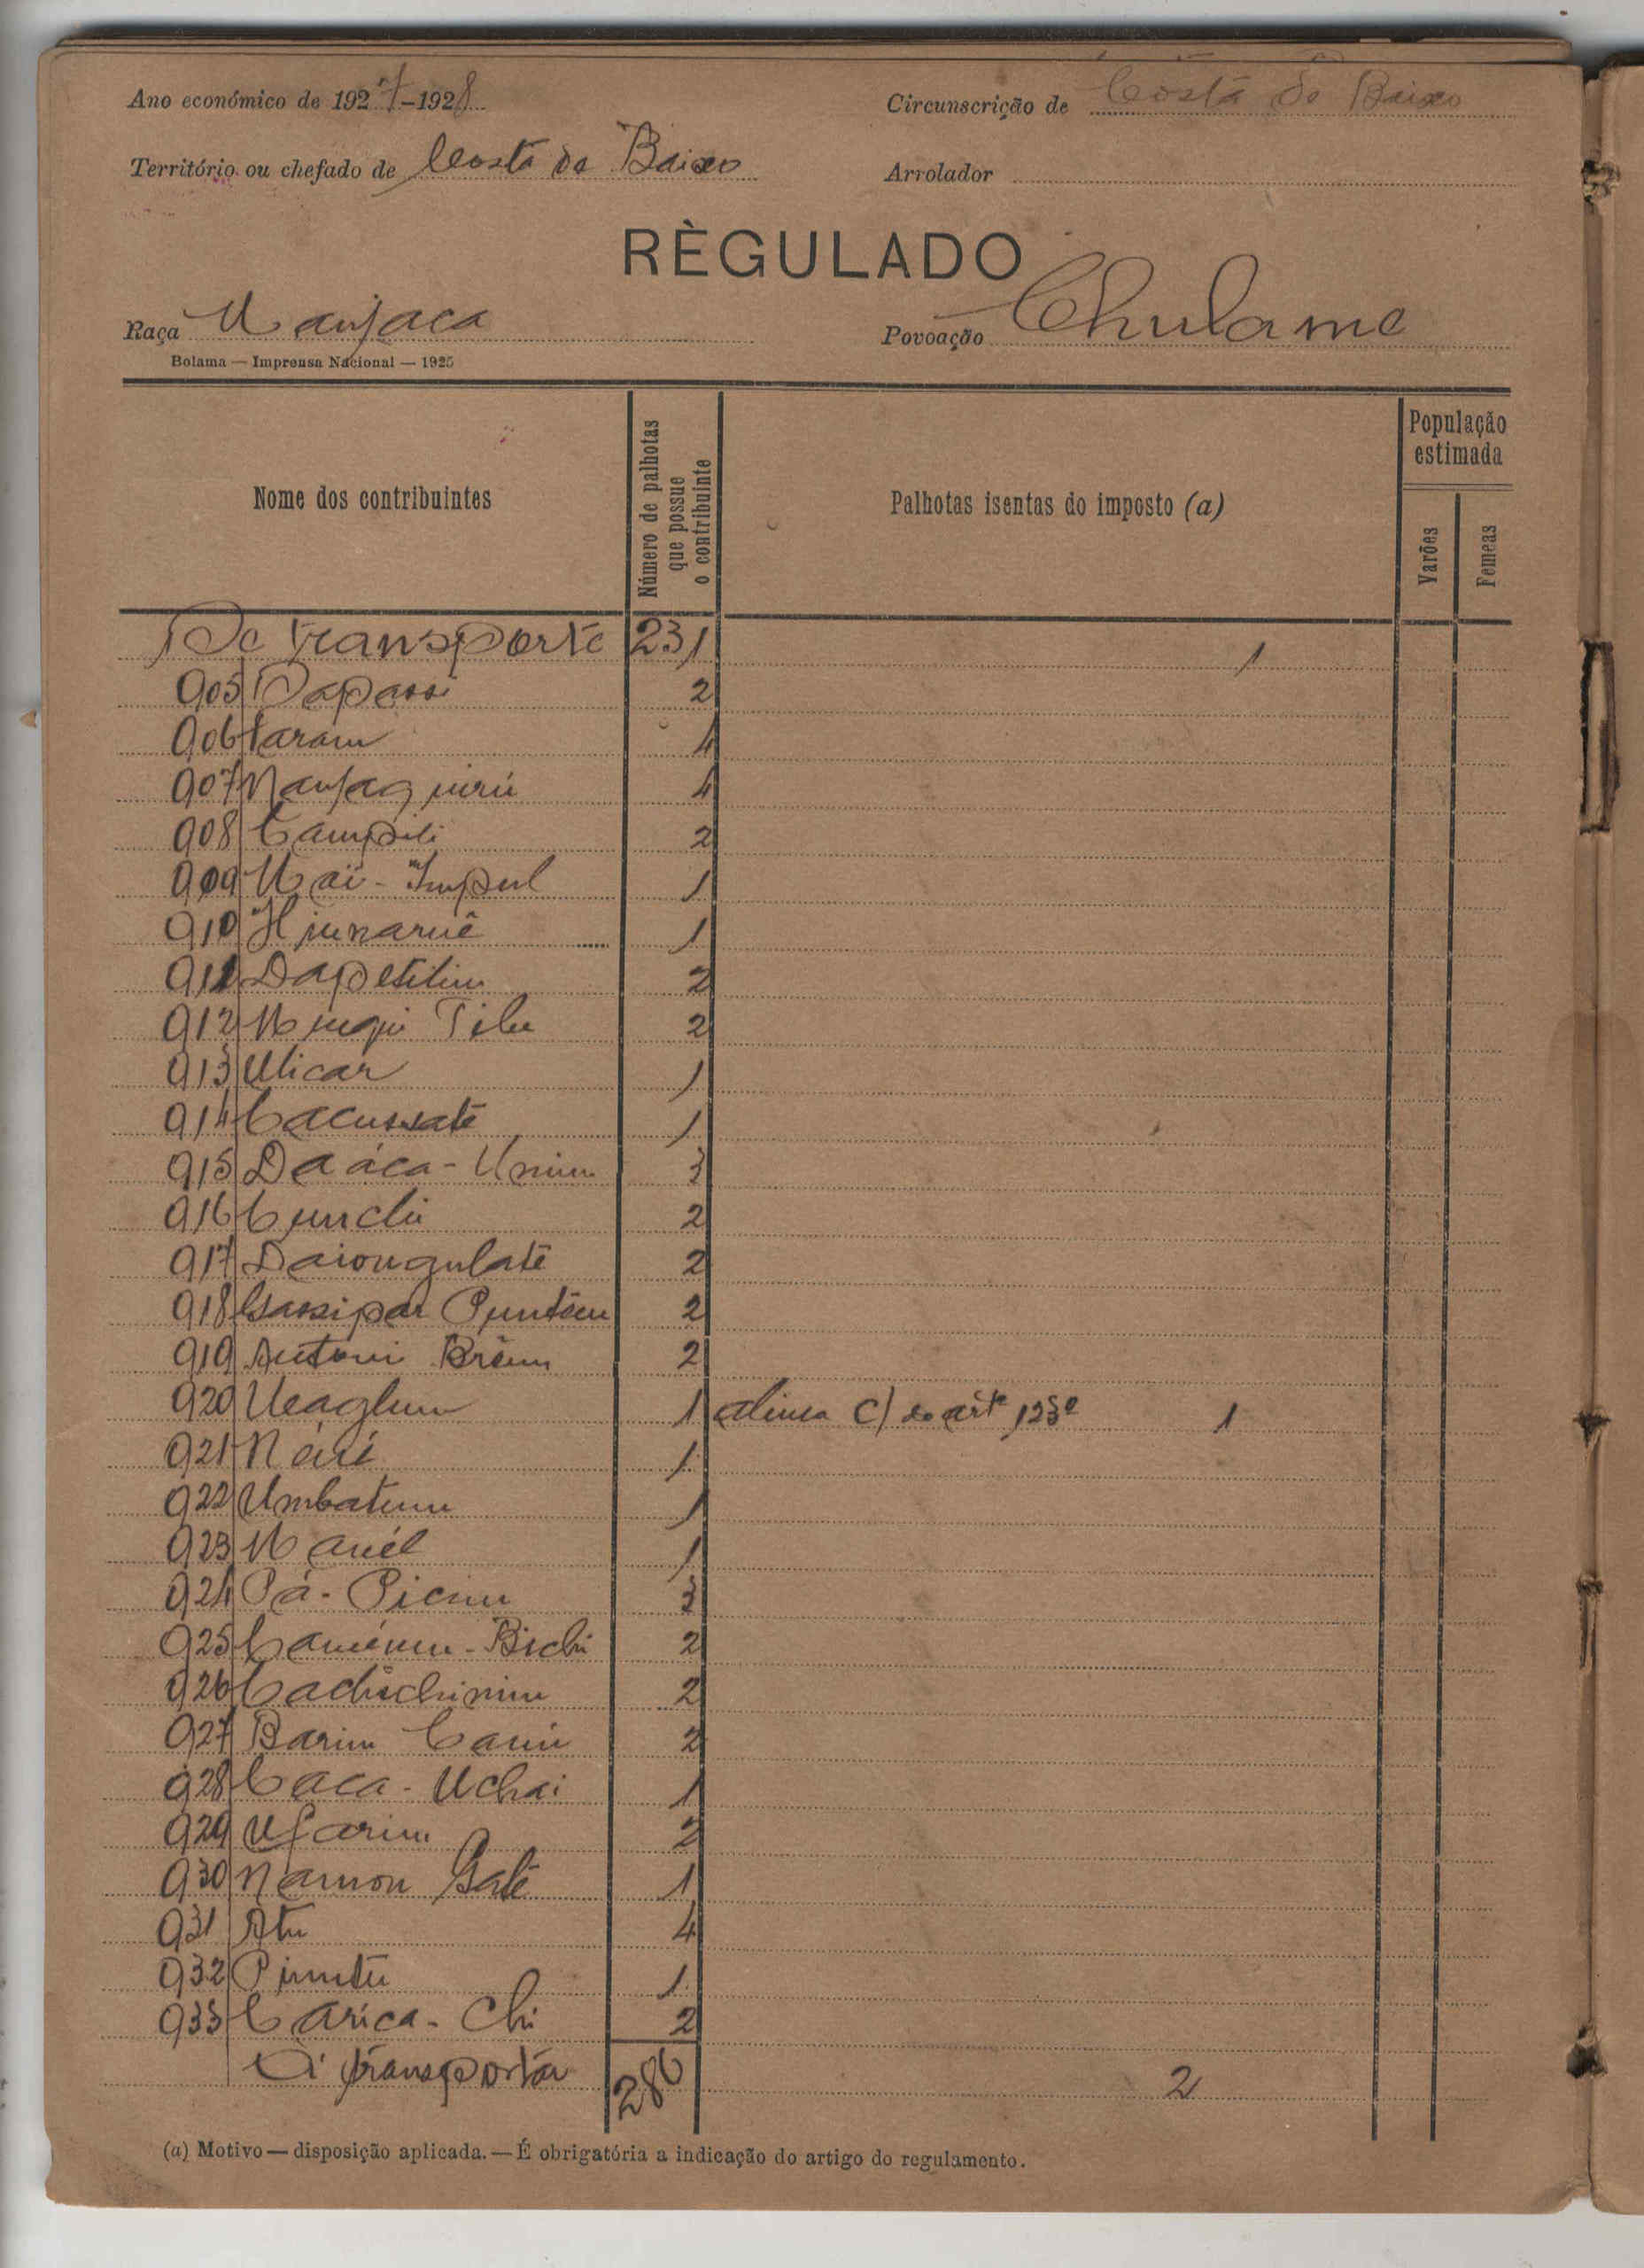 Ano económico de 1927-1928
Circunscrição de Costa de Baixo
Território ou chefado de Costa de Baixo
Arrolador
RÈGULADO
Raça Manjaca
Povoação Chulame
Bolama — Imprensa Nacional — 1925
Nome dos contribuintes
Número de palhotas que possue o contribuinte
Palhotas isentas do imposto (a)
População estimada
Varões
Femeas
De transporte 231 1
905 Dapassi 2
906 taram 4
907 Manjaquirú 4
908 Campili 2
909 Naï-Impul 1
910 1
911 2
912 2
913 Ulicar 1
914 Cacussatê 1
915 Daáca-Unim 3
916 Cunchi 2
917 Daiongulatê 2
918 Gassipar 2
919 Antoni 2
920 1 alinea c) do artº 123º 1
921 1
922 Umbatum 1
923 1
924 Pá-Picinu 3
925 2
926 Cachichinim 2
927 Barim 2
928 Caca-Uchai 1
929 Ufarim 2
930 Namon Gatê 1
931 Atu 4
932 1
933 Carica-Chi 2
A transportar 286 2
(a) Motivo — disposição aplicada. — É obrigatória a indicação do artigo do regulamento.